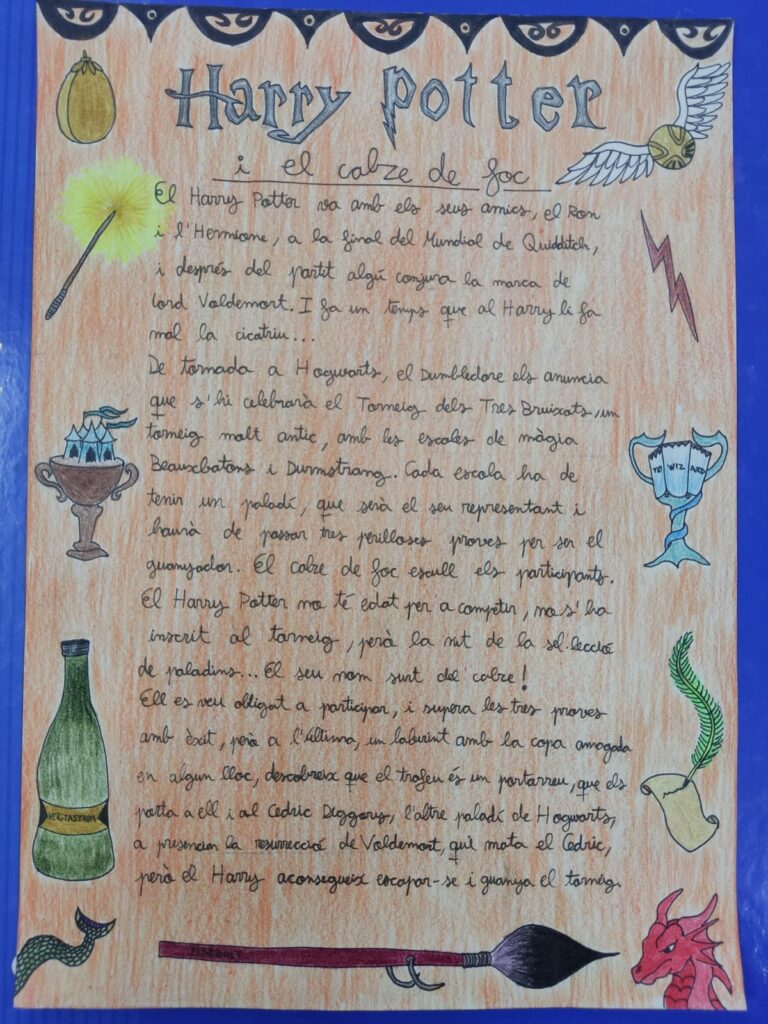 Harry Potter
i el calze de foc
El Harry Potter va amb els seus amics, el Ron
i l'Hermione, a la final del Mundial de Quidditch,
i després del partit algú conjura la marca de
lord Voldemort. I fa un temps que al Harry li fa
mal la cicatriu...
De tornada a Hogwarts, el Dumbledore els anuncia
que s'hi celebrarà el Torneig dels Tres Bruixots, un
torneig molt antic, amb les escoles de màgia
Beauxbatons i Durmstrang. Cada escola ha de
tenir un paladí, que serà el seu representant i
haurà de passar tres perilloses proves per ser el
guanyador. El calze de foc escull els participants.
El Harry Potter no té edat per a competir, no s'ha
inscrit al torneig, però la nit de la sel·lecció
de paladins... El seu nom surt del calze!
Ell es veu obligat a participar, i supera les tres proves
amb èxit, però a l'última, un laberint amb la copa amagada
en algun lloc, descobreix que el trofeu és un portarreu, que els
porta a ell i al Cedric Diggory, l'altre paladí de Hogwarts,
a presenciar la resurrecció de Voldemort, qui mata el Cedric,
però el Harry aconsegueix escapar-se i guanya el torneig.
WIZ ARD
VERITASERUM
FIREBOLT